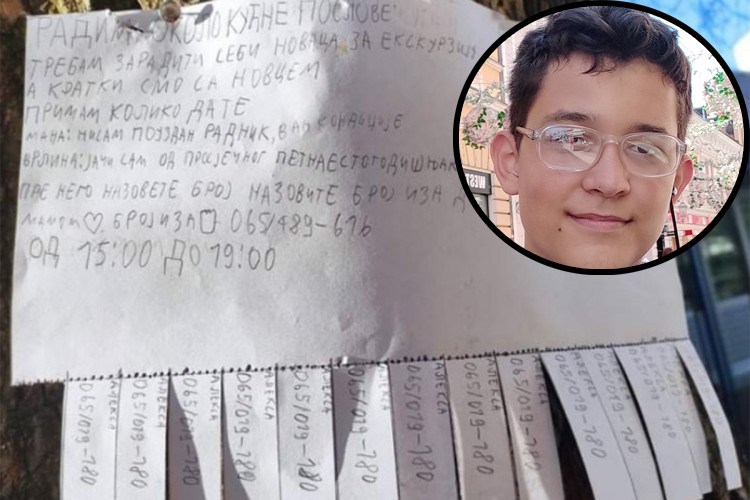 РАДИМ ОКОЛОКУЋНЕ ПОСЛОВЕ
ТРЕБАМ ЗАРАДИТИ СЕБИ НОВАЦА ЗА ЕКСКУРЗИЈУ
А КРАТКИ СМО СА НОВЦЕМ
ПРИМАМ КОЛИКО ДАТЕ
МАНА: НИСАМ ПОУЗДАН РАДНИК, ВАН КОНДИЦИЈЕ
ВРЛИНА: ЈАЧИ САМ ОД ПРОСЈЕЧНОГ ПЕТНАЕСТОГОДИШЊАК
ПРЕ НЕГО НАЗОВЕТЕ БРОЈ НАЗОВИТЕ БРОЈ ИЗА
♡. БРОЈ ИЗА 065/489-616
ОД 15:00 ДО 19:00
WEST
АЛЕКСА 065/019-780
АЛЕКСА 065/019-780
АЛЕКСА 065/019-780
АЛЕКСА 065/019-780
АЛЕКСА 065/019-780
АЛЕКСА 065/019-780
АЛЕКСА 065/019-780
АЛЕКСА 065/019-780
АЛЕКСА 065/019-780
АЛЕКСА 065/019-780
065/019-780